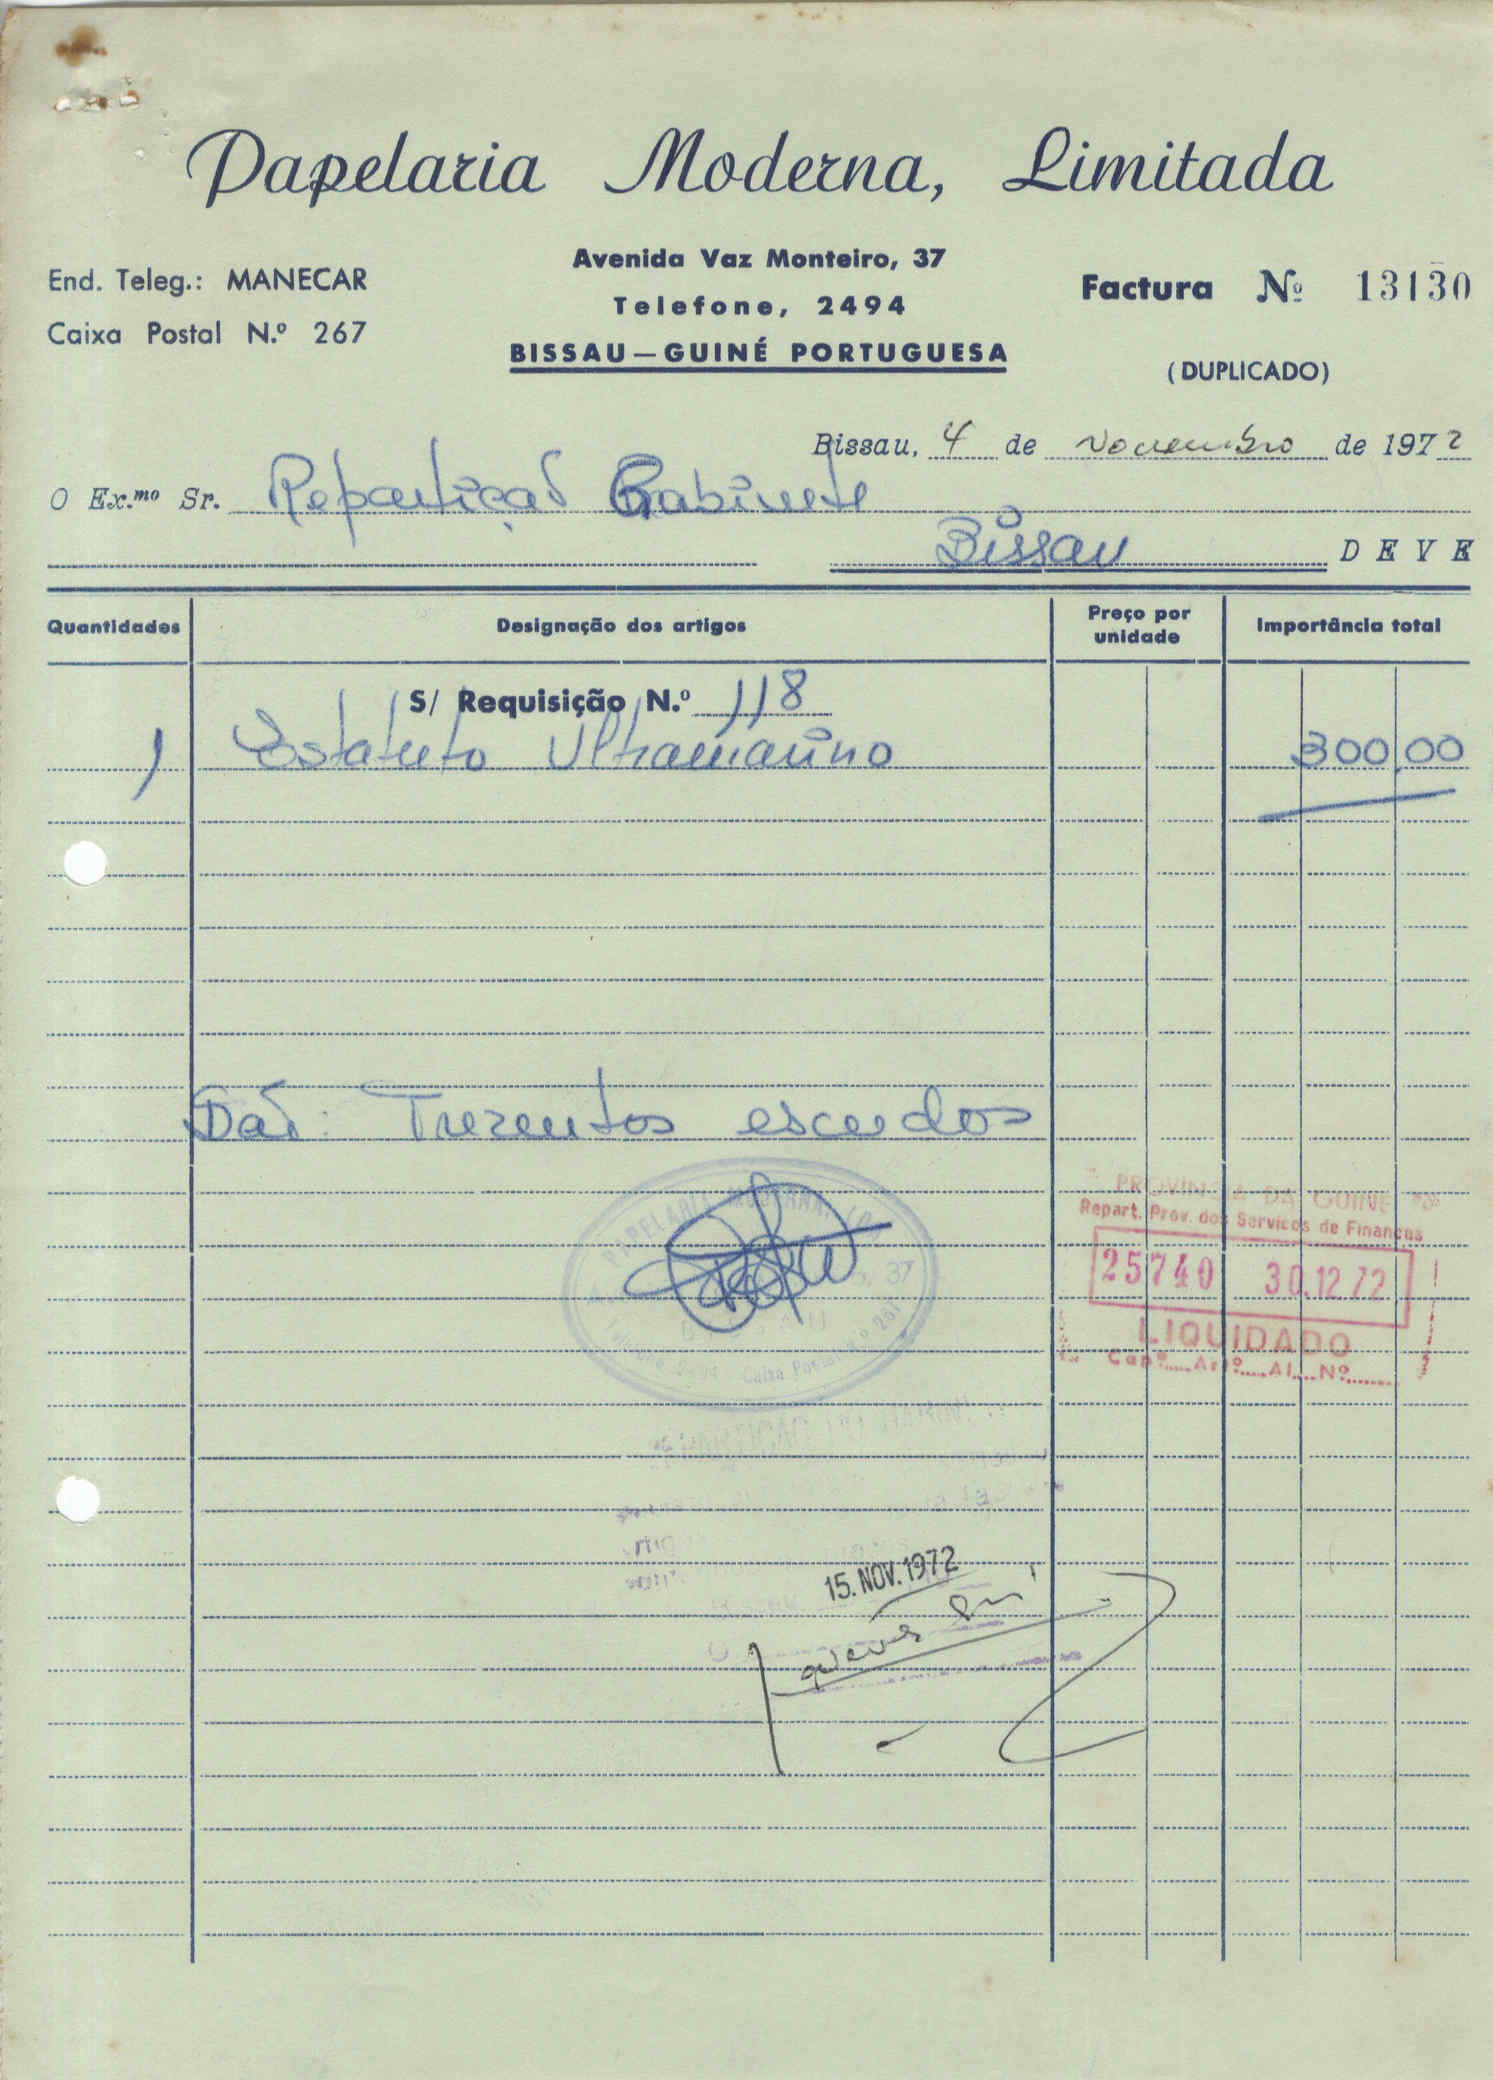 Papelaria Moderna, Limitada
End. Teleg.: MANECAR
Caixa Postal N.º 267
Avenida Vaz Monteiro, 37
Telefone, 2494
BISSAU—GUINÉ PORTUGUESA
Factura Nº 13130
(DUPLICADO)
Bissau, 4 de Novembro de 1972
O Ex.mo Sr. Repartição Gabinete
Bissau DEVE
Quantidades Designação dos artigos Preço por unidade Importância total
S/ Requisição N.º 118
1 Estatuto Ultramarino 300,00
São: Trezentos escudos
PAPELARIA MODERNA, LDA
37
Caixa Postal N.º 267
PROVINCIA DA GUINÉ
Repart. Prov. dos Servicos de Finanças
25740 30.12.72
LIQUIDADO
Capº.....Artº.....Al....Nº........
15. NOV. 1972